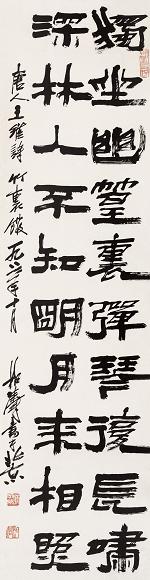 獨坐幽篁裏彈琴復長嘯
深林人不知明月來相照
唐人王維詩竹裏館